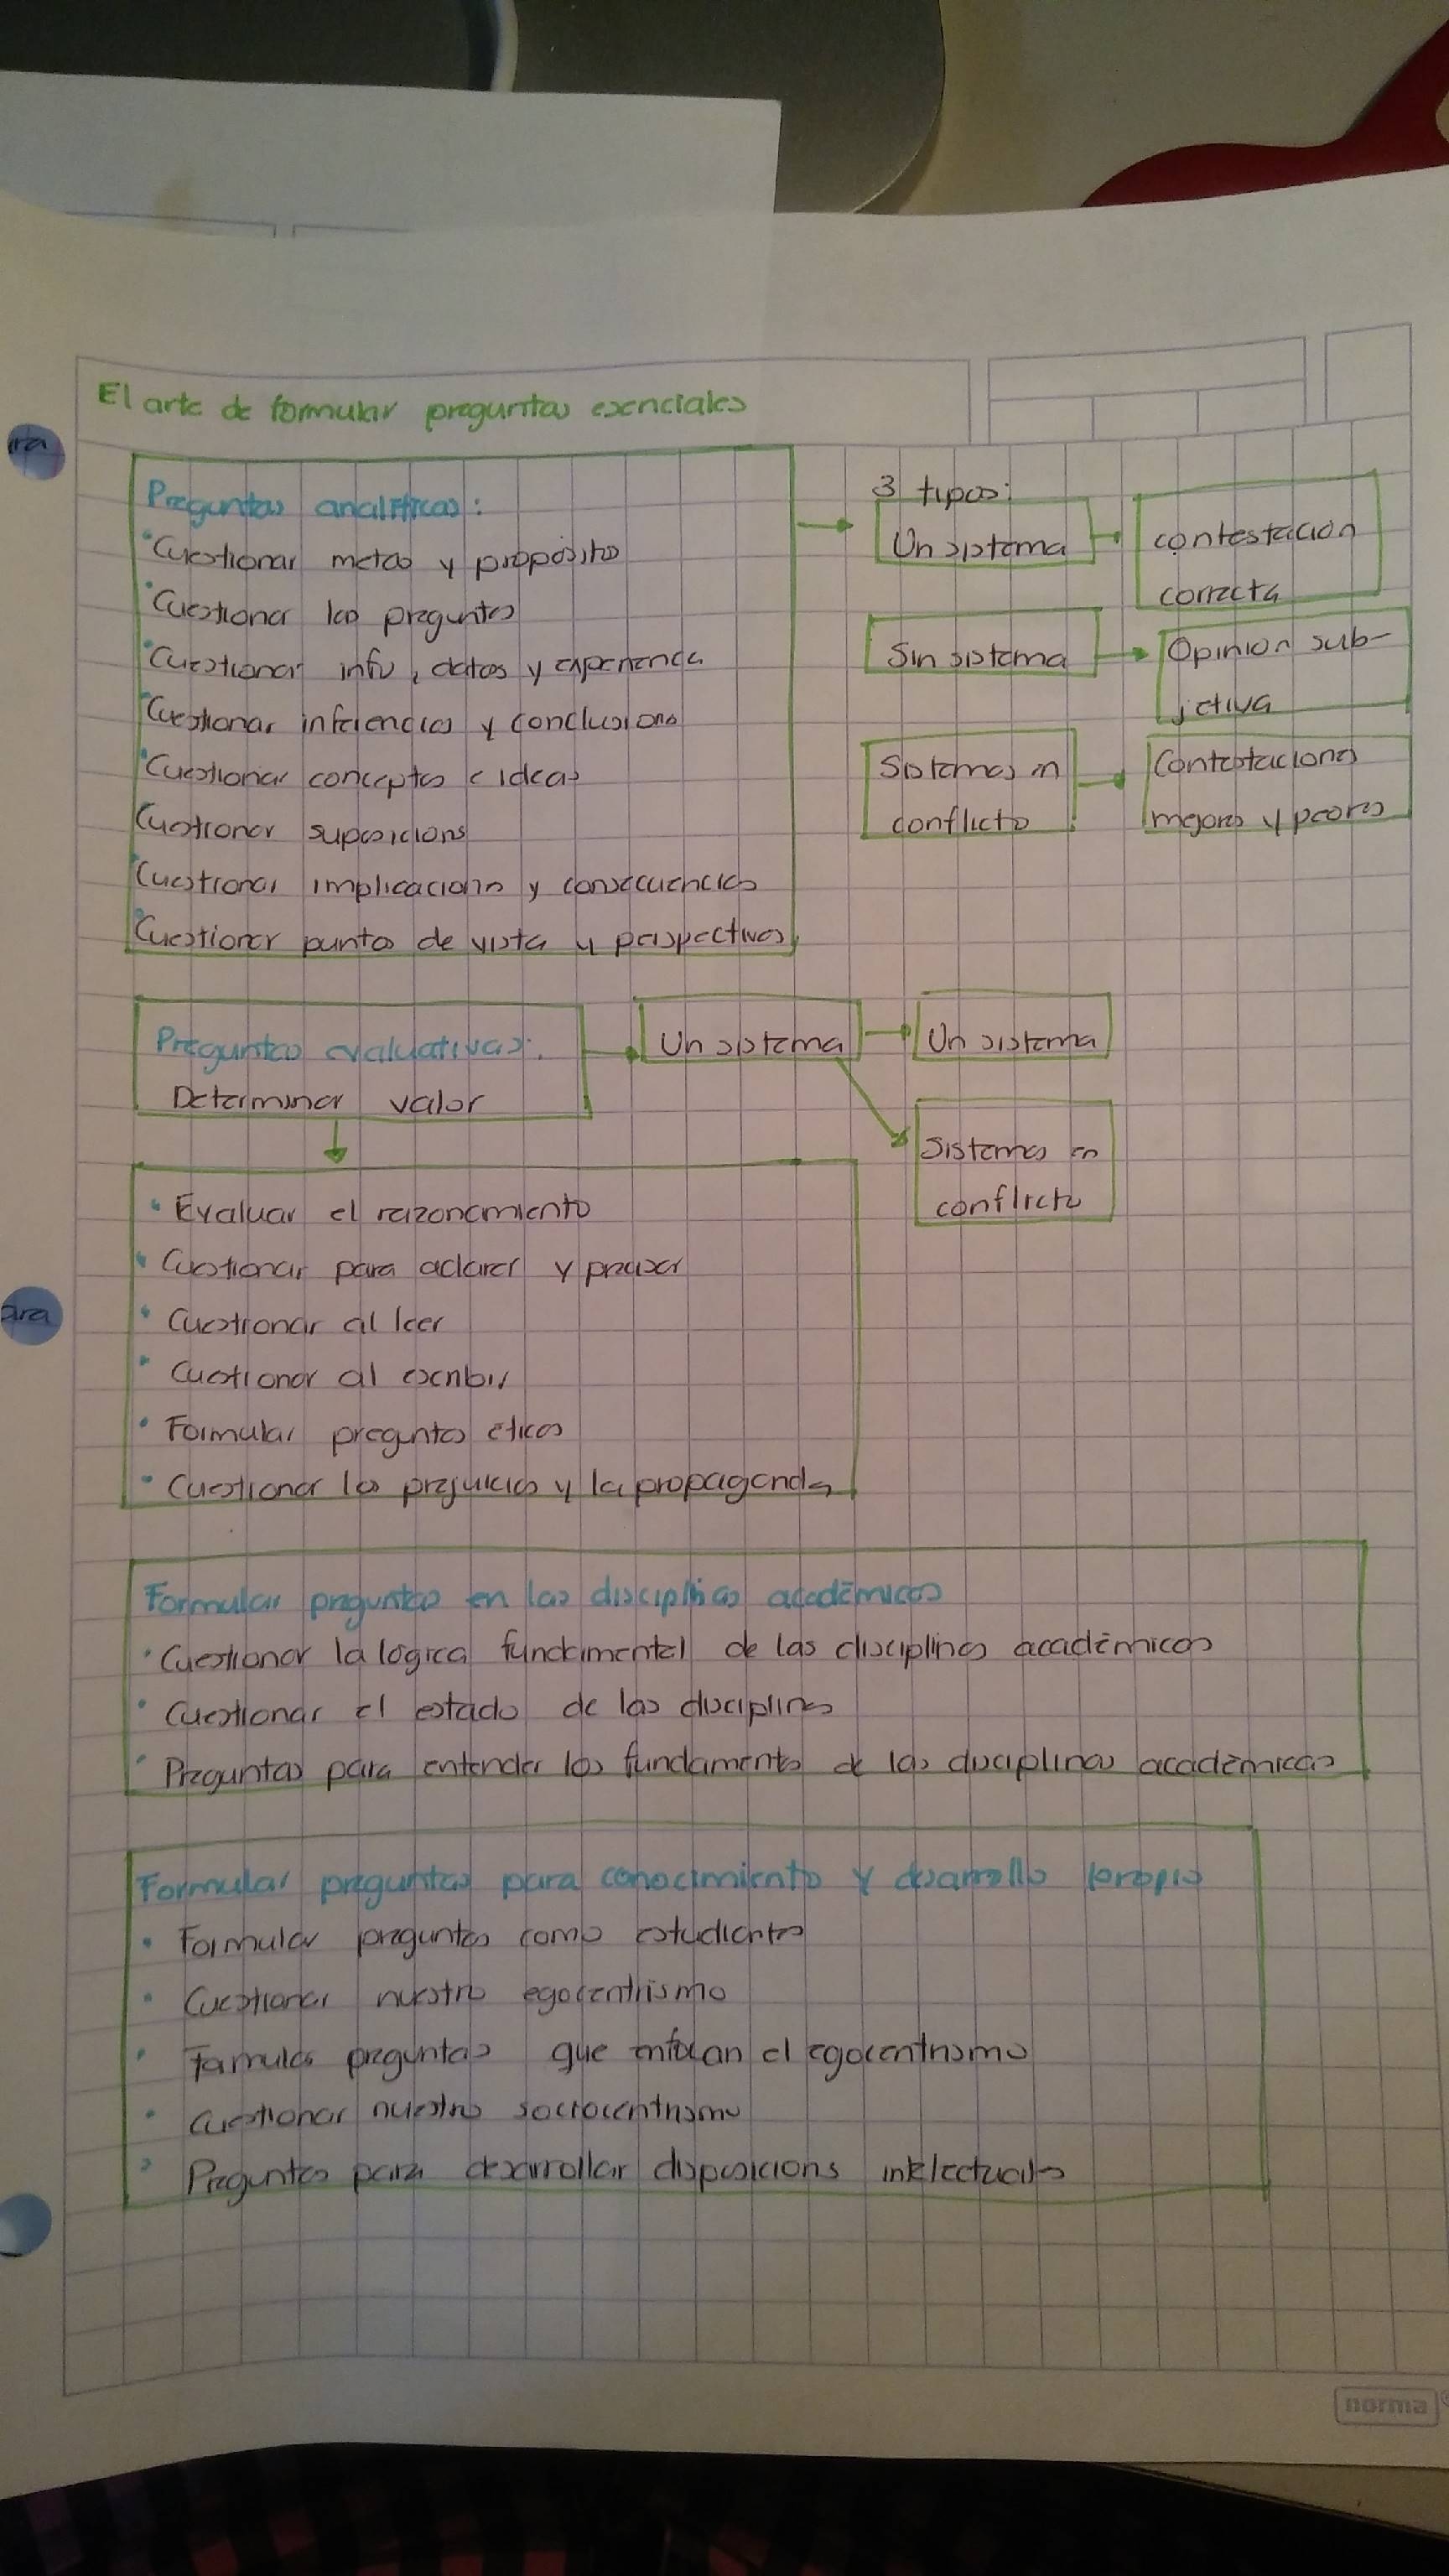 El arte de formular preguntas esenciales
Preguntas analíticas:
Cuestionar metas y propósito
Cuestionar las preguntas
Cuestionar info, datos y experiencia
Cuestionar inferencias y conclusions
Cuestionar conceptos e ideas
Cuestionar suposicions
Cuestionar implicacions y consecuencias
Cuestionar puntos de vista y perspectivas
3 tipos:
Un sistema
contestación
correcta
Sin sistema
Opinion sub-
jetiva
Sistemas en
conflicto
Contestaciones
mejores y peores
Preguntas evaluativas:
Determinar valor
Un sistema
Un sistema
Sistemas en
conflicto
Evaluar el razonamiento
Cuestionar para aclarar y precisar
Cuestionar al leer
Cuestionar al escribir
Formular preguntas éticas
Cuestionar los prejuicios y la propaganda
Formular preguntas en las disciplinas académicas
Cuestionar la lógica fundamental de las disciplinas académicas
Cuestionar el estado de las disciplinas
Preguntas para entender los fundamentos de las disciplinas académicas
Formular preguntas para conocimiento y desarrollo propio
Formular preguntas como estudiantes
Cuestionar nuestro egocentrismo
Formulas preguntas que enfocan el egocentrismo
Cuestionar nuestro sociocentrismo
Preguntas para desarrollar disposicions intelectuales
norma
ara